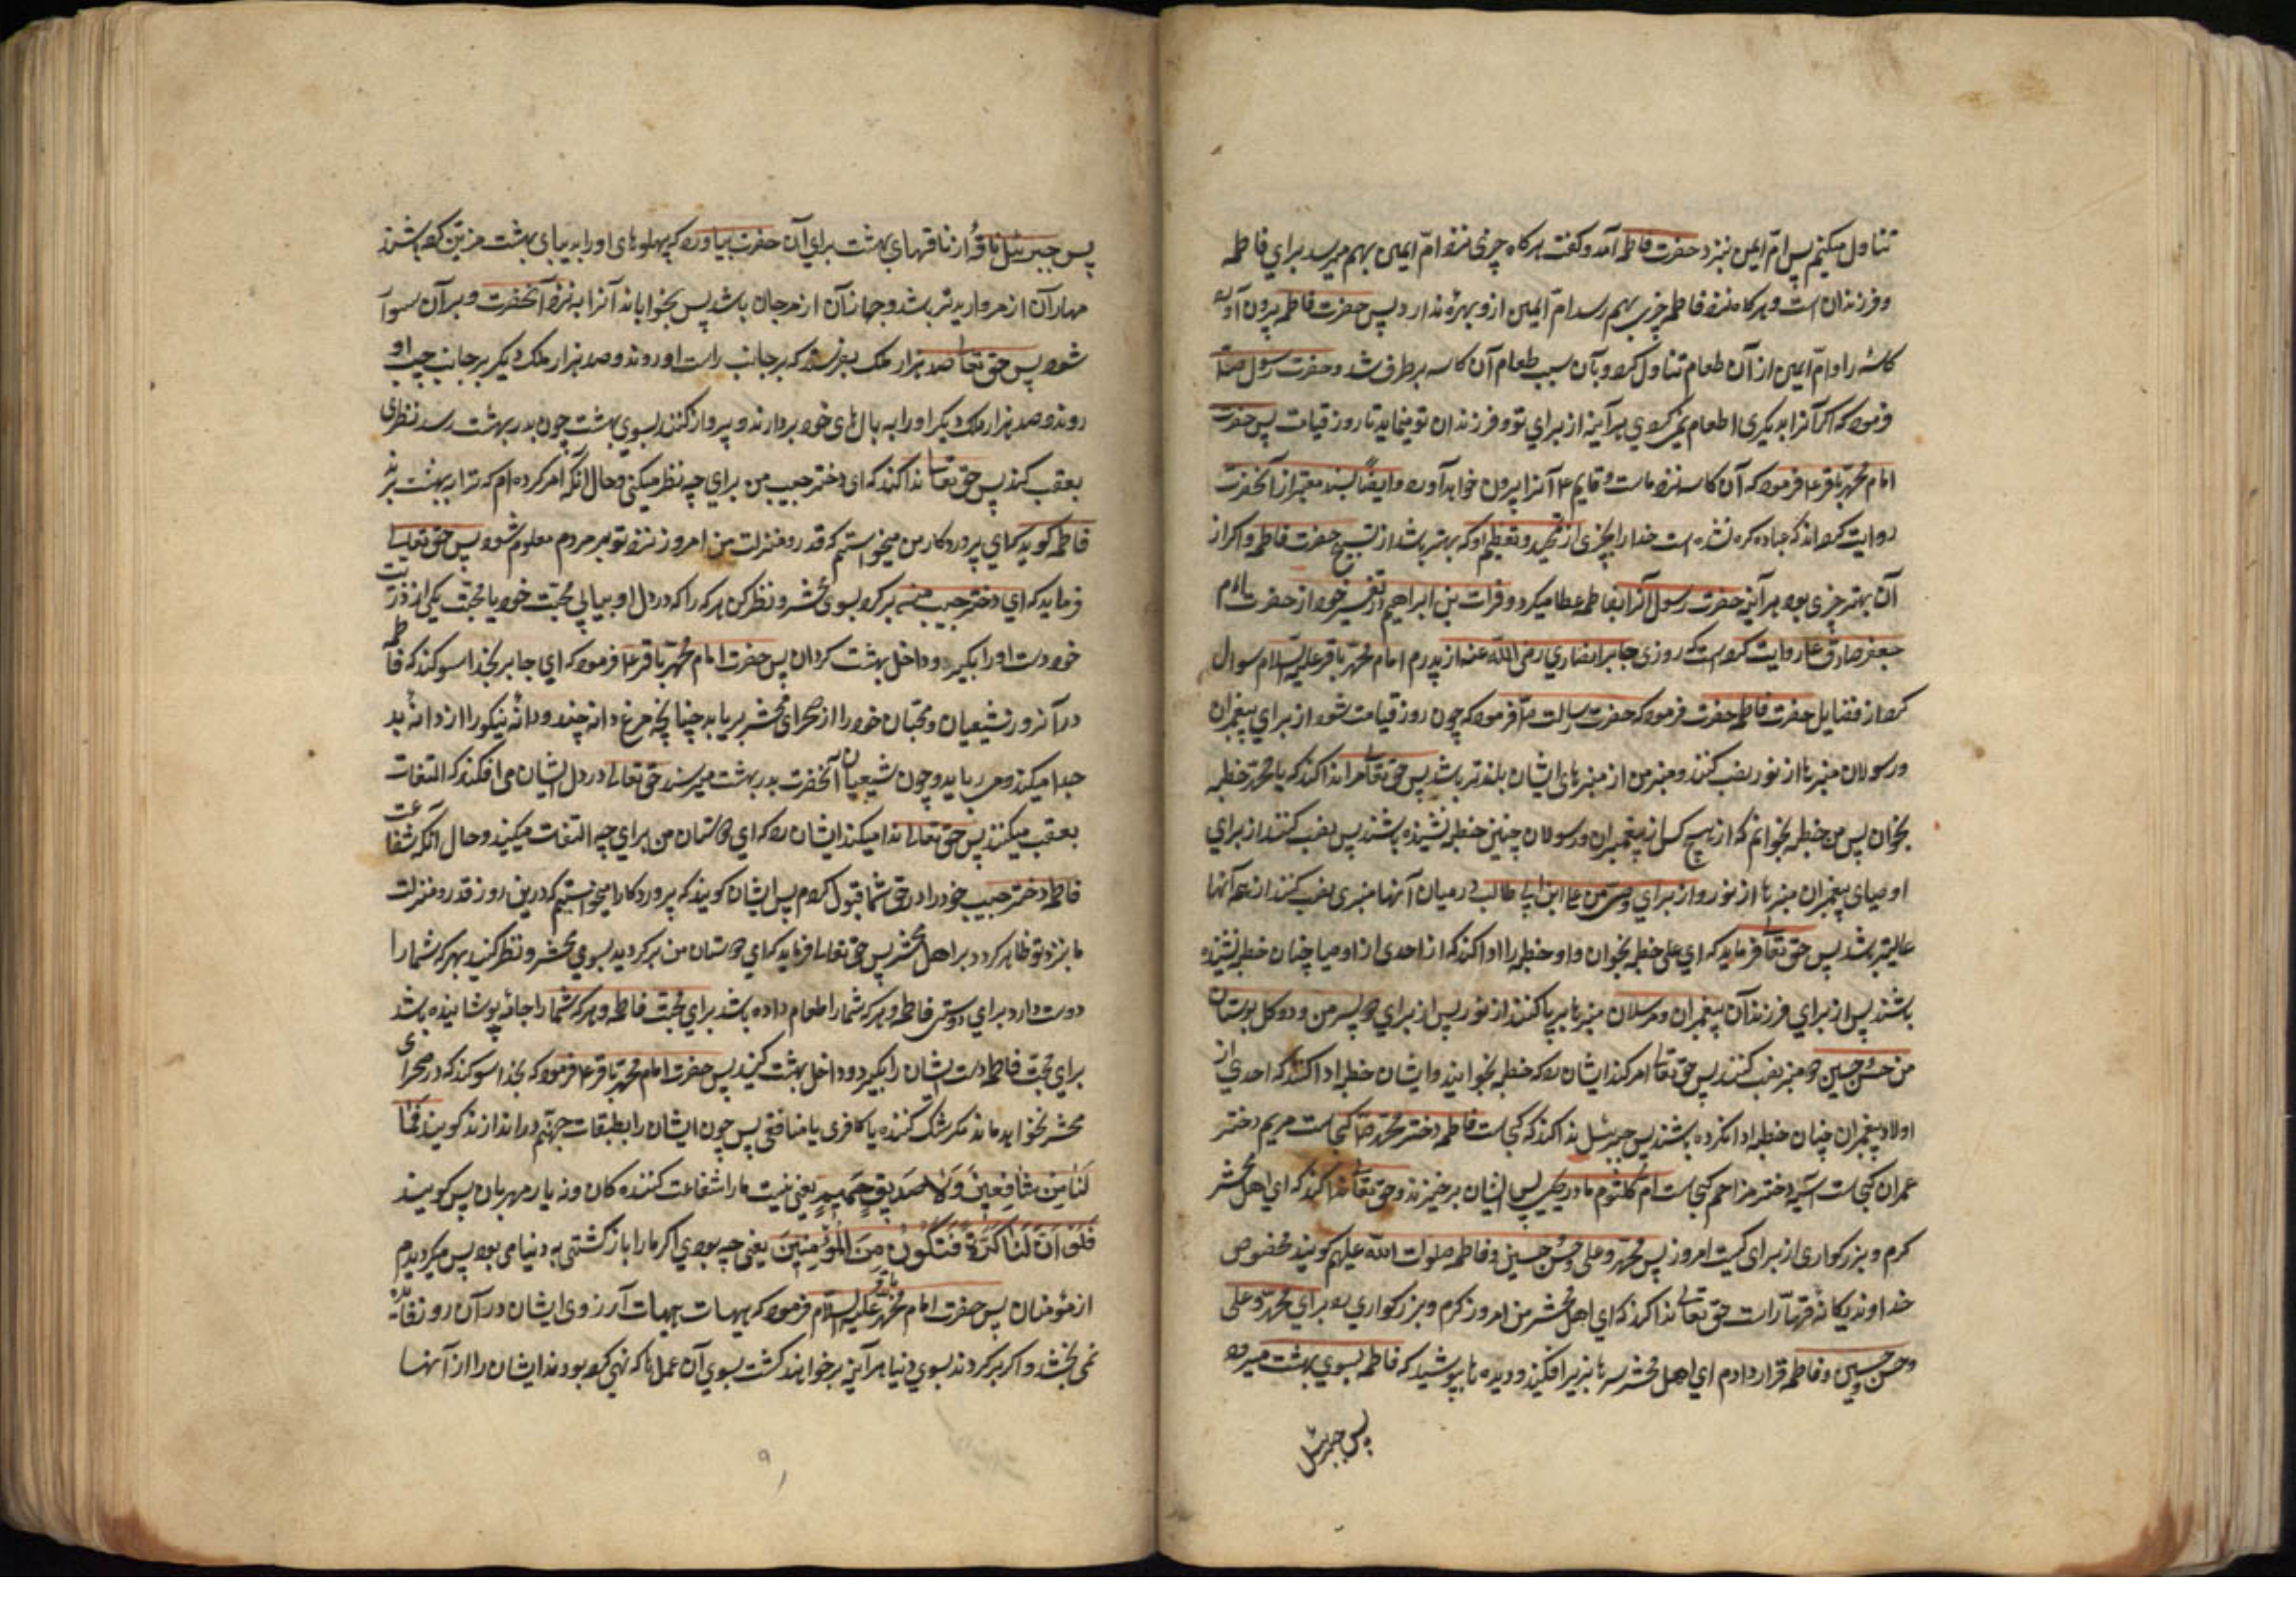 تناول میکنیم پس امّ ایمن بنزد حضرت فاطمه آمد و گفت هرگاه چیزی نزد امّ ایمن بهم میرسد برای فاطمه
و فرزندان است و هرگاه نزد فاطمه چیزی بهم رسد امّ ایمن ازو بهره ندارد پس حضرت فاطمه بیرون آورد
کاسه را و امّ ایمن از آن طعام تناول کرد و بآن سبب طعام آن کاسه برطرف شد و حضرت رسول ص
فرمود که اگر آنرا بدیگری اطعام نمی کردی هر آینه از برای تو و فرزندان تو میماند تا روز قیامت پس حضرت
امام محمّد باقر ع فرمود که آن کاسه نزد ماست و قایم ع آنرا بیرون خواهد آورد و ایضًا بسند معتبر از آنحضرت
روایت کرده اند که عباده کرده نشده است خدا را بچیزی از تمجید و تعظیم او که بهتر باشد از تسبیح حضرت فاطمه و اگر از
آن بهتر چیزی بود هر آینه حضرت رسول آنرا بفاطمه عطا میکرد و فرات بن ابراهیم در تفسیر خود از حضرت امام
جعفر صادق ع روایت کرده است که روزی جابر انصاری رضی الله عنه از پدرم امام محمّد باقر علیه السلام سوال
کرد از فضایل حضرت فاطمه حضرت فرمود که حضرت رسالت ص فرمود که چون روز قیامت شود از برای پیغمبران
و رسولان منبرها از نور نصب کنند و منبر من از منبرهای ایشان بلندتر باشد پس حق تعا مرا ندا کند که یا محمّد خطبه
بخوان پس من خطبه بخوانم که از هیچ کس از پیغمبران و رسولان چنین خطبه نشنیده باشند پس نصب کنند از برای
اوصیای پیغمبران منبرها از نور و از برای وصیّ من علی ابن ابی طالب در میان آنها منبری نصب کنند از همه آنها
عالیتر باشد پس حق تعا فرماید که ای علی خطبه بخوان و او خطبه را ادا کند که از احدی از اوصیا چنان خطبه نشنیده
باشند پس از برای فرزندان پیغمبران و مرسلان منبرها برپا کنند از نور پس از برای دو پسر من و دو گل بوستان
من حسن و حسین دو منبر نصب کنند پس حق تعا امر کند ایشان را که خطبه بخوانید و ایشان خطبه ادا کنند که احدی از
اولاد پیغمبران چنان خطبه ادا نکرده باشند پس جبرئیل ندا کند که کجاست فاطمه دختر محمّد ص کجاست مریم دختر
عمران کجاست آسیه دختر مزاحم کجاست ام کلثوم مادر یحیی پس ایشان برخیزند و حق تعا ندا کند که ای اهل محشر
کرم و بزرگواری از برای کیست امروز پس محمّد و علی و حسن و حسین و فاطمه صلوات الله علیهم گویند مخصوص
خداوند یگانه قهّار است حق تعالی ندا کند که ای اهل محشر من امروز کرم و بزرگواری را برای محمّد و علی
و حسن و حسین و فاطمه قرار دادم ای اهل محشر سرها بزیر افکنید و دیده ها بپوشید که فاطمه بسوی بهشت میرود
پس جبرئیل
پس جبرئیل ناقهٔ از ناقهای بهشت برای آن حضرت بیاورد که پهلوهای او را بدیبای بهشت مزین کرده باشند
مهار آن از مروارید تر باشد و جهاز آن از مرجان باشد پس بخواباند آنرا بنزد آنحضرت و بر آن سوار
شود پس حق تعا صد هزار ملک بفرستد که بر جانب راست او روند و صد هزار ملک دیگر بر جانب چپ او
روند و صد هزار ملک دیگر او را به بال های خود بردارند و پرواز کنند بسوی بهشت چون بدر بهشت رسد نظری
بعقب کند پس حق تعا ندا کند که ای دختر حبیب من برای چه نظر میکنی و حال آنکه امر کرده ام که ترا ببهشت برند
فاطمه گوید که ای پروردگار من میخواستم که قدر و منزلت من امروز نزد تو بر مردم معلوم شود پس حق تعالی
فرماید که ای دختر حبیب من برگرد بسوی محشر و نظر کن هر که را که در دل او بیابی محبّت خود یا محبّت یکی از ذریّت
خود دست او را بگیر و داخل بهشت گردان پس حضرت امام محمّد باقر ع فرمود که ای جابر بخدا سوگند که فاطمه
در آنروز شیعیان و محبّان خود را از صحرای محشر برباید چنانچه مرغ دانه چیند و دانهٔ نیکو را از دانهٔ بد
جدا میکند و می رباید و چون شیعیان آنحضرت بدر بهشت میرسند حق تعالی در دل ایشان می افکند که التفات
بعقب میکنند پس حق تعالی ندا میکند ایشان را که ای دوستان من برای چه التفات میکنید و حال آنکه شفاعت
فاطمه دختر حبیب خود را در حق شما قبول کردم پس ایشان گویند که پروردگارا میخواستیم که درین روز قدر و منزلت
ما نزد تو ظاهر گردد بر اهل محشر پس حق تعا فرماید که ای دوستان من برگردید بسوی محشر و نظر کنید بهر که شما را
دوست دارد برای دوستی فاطمه و هر که شما را طعام داده باشد برای محبّت فاطمه و هر که شما را جامه پوشانیده باشد
برای محبّت فاطمه دست ایشان را بگیرد و داخل بهشت کنید پس حضرت امام محمّد باقر ع فرمود که بخدا سوگند که در صحرای
محشر نخواهد ماند مگر شک کننده یا کافری یا منافقی پس چون ایشان را بطبقات جهنّم دراندازند گویند فَمٰا
لَنٰا مِن شٰافِعینَ وَلٰا صَدیقٍ حَمیمٍ یعنی نیست ما را شفاعت کننده کان و نه یار مهربان پس گویند
فَلَوْ اَنَّ لَنٰا کَرَّةً فَنَکُونَ مِنَ الْمُؤمِنینَ یعنی چه بودی اگر ما را بازگشتی به دنیا می بود پس میگردیدیم
از مؤمنان پس حضرت امام محمّد باقر علیه السلام فرمود که هیهات هیهات آرزوی ایشان در آن روز فایده
نمی بخشد و اگر برگردند بسوی دنیا هر آینه برخواهند گشت بسوی آن عمل ها که نهی کرده بودند ایشان را از آنها